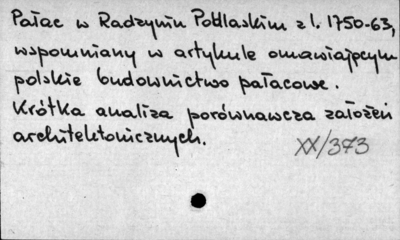 Pałac w Radzyniu Podlaskim z l. 1750-63,
wspomniany w artykule omawiającym
polskie budownictwo pałacowe.
Krótka analiza porównawcza założeń
architektonicznych.
XX/373